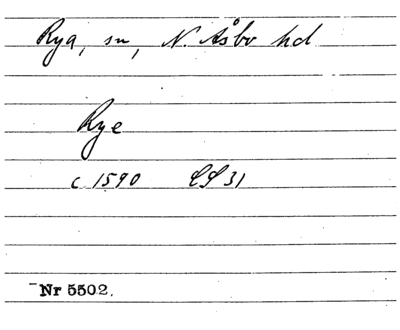 Rya, sn, N. Åsbo hd
Rye
c. 1590 LS 31
Nr 5502.